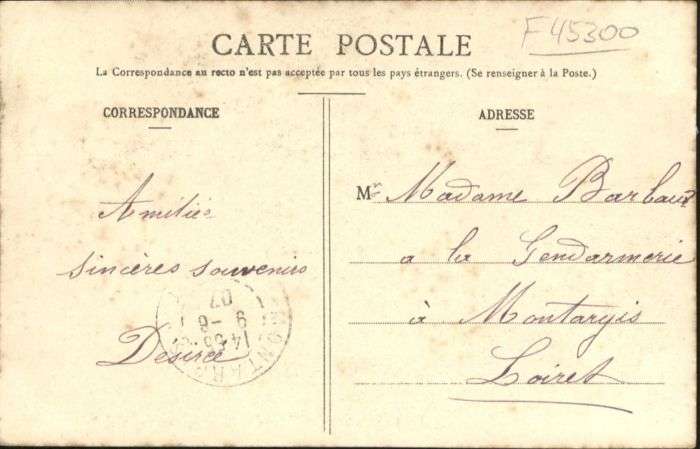 F 45300
CARTE POSTALE
La Correspondance au recto n'est pas acceptée par tous les pays étrangers. (Se renseigner à la Poste.)
CORRESPONDANCE
Amitiés
sincères souvenirs
Desirée
ADRESSE
M
Madame Barbaux
a la Gendarmerie
à Montargis
Loiret
MONTAR
14
9 -6
07